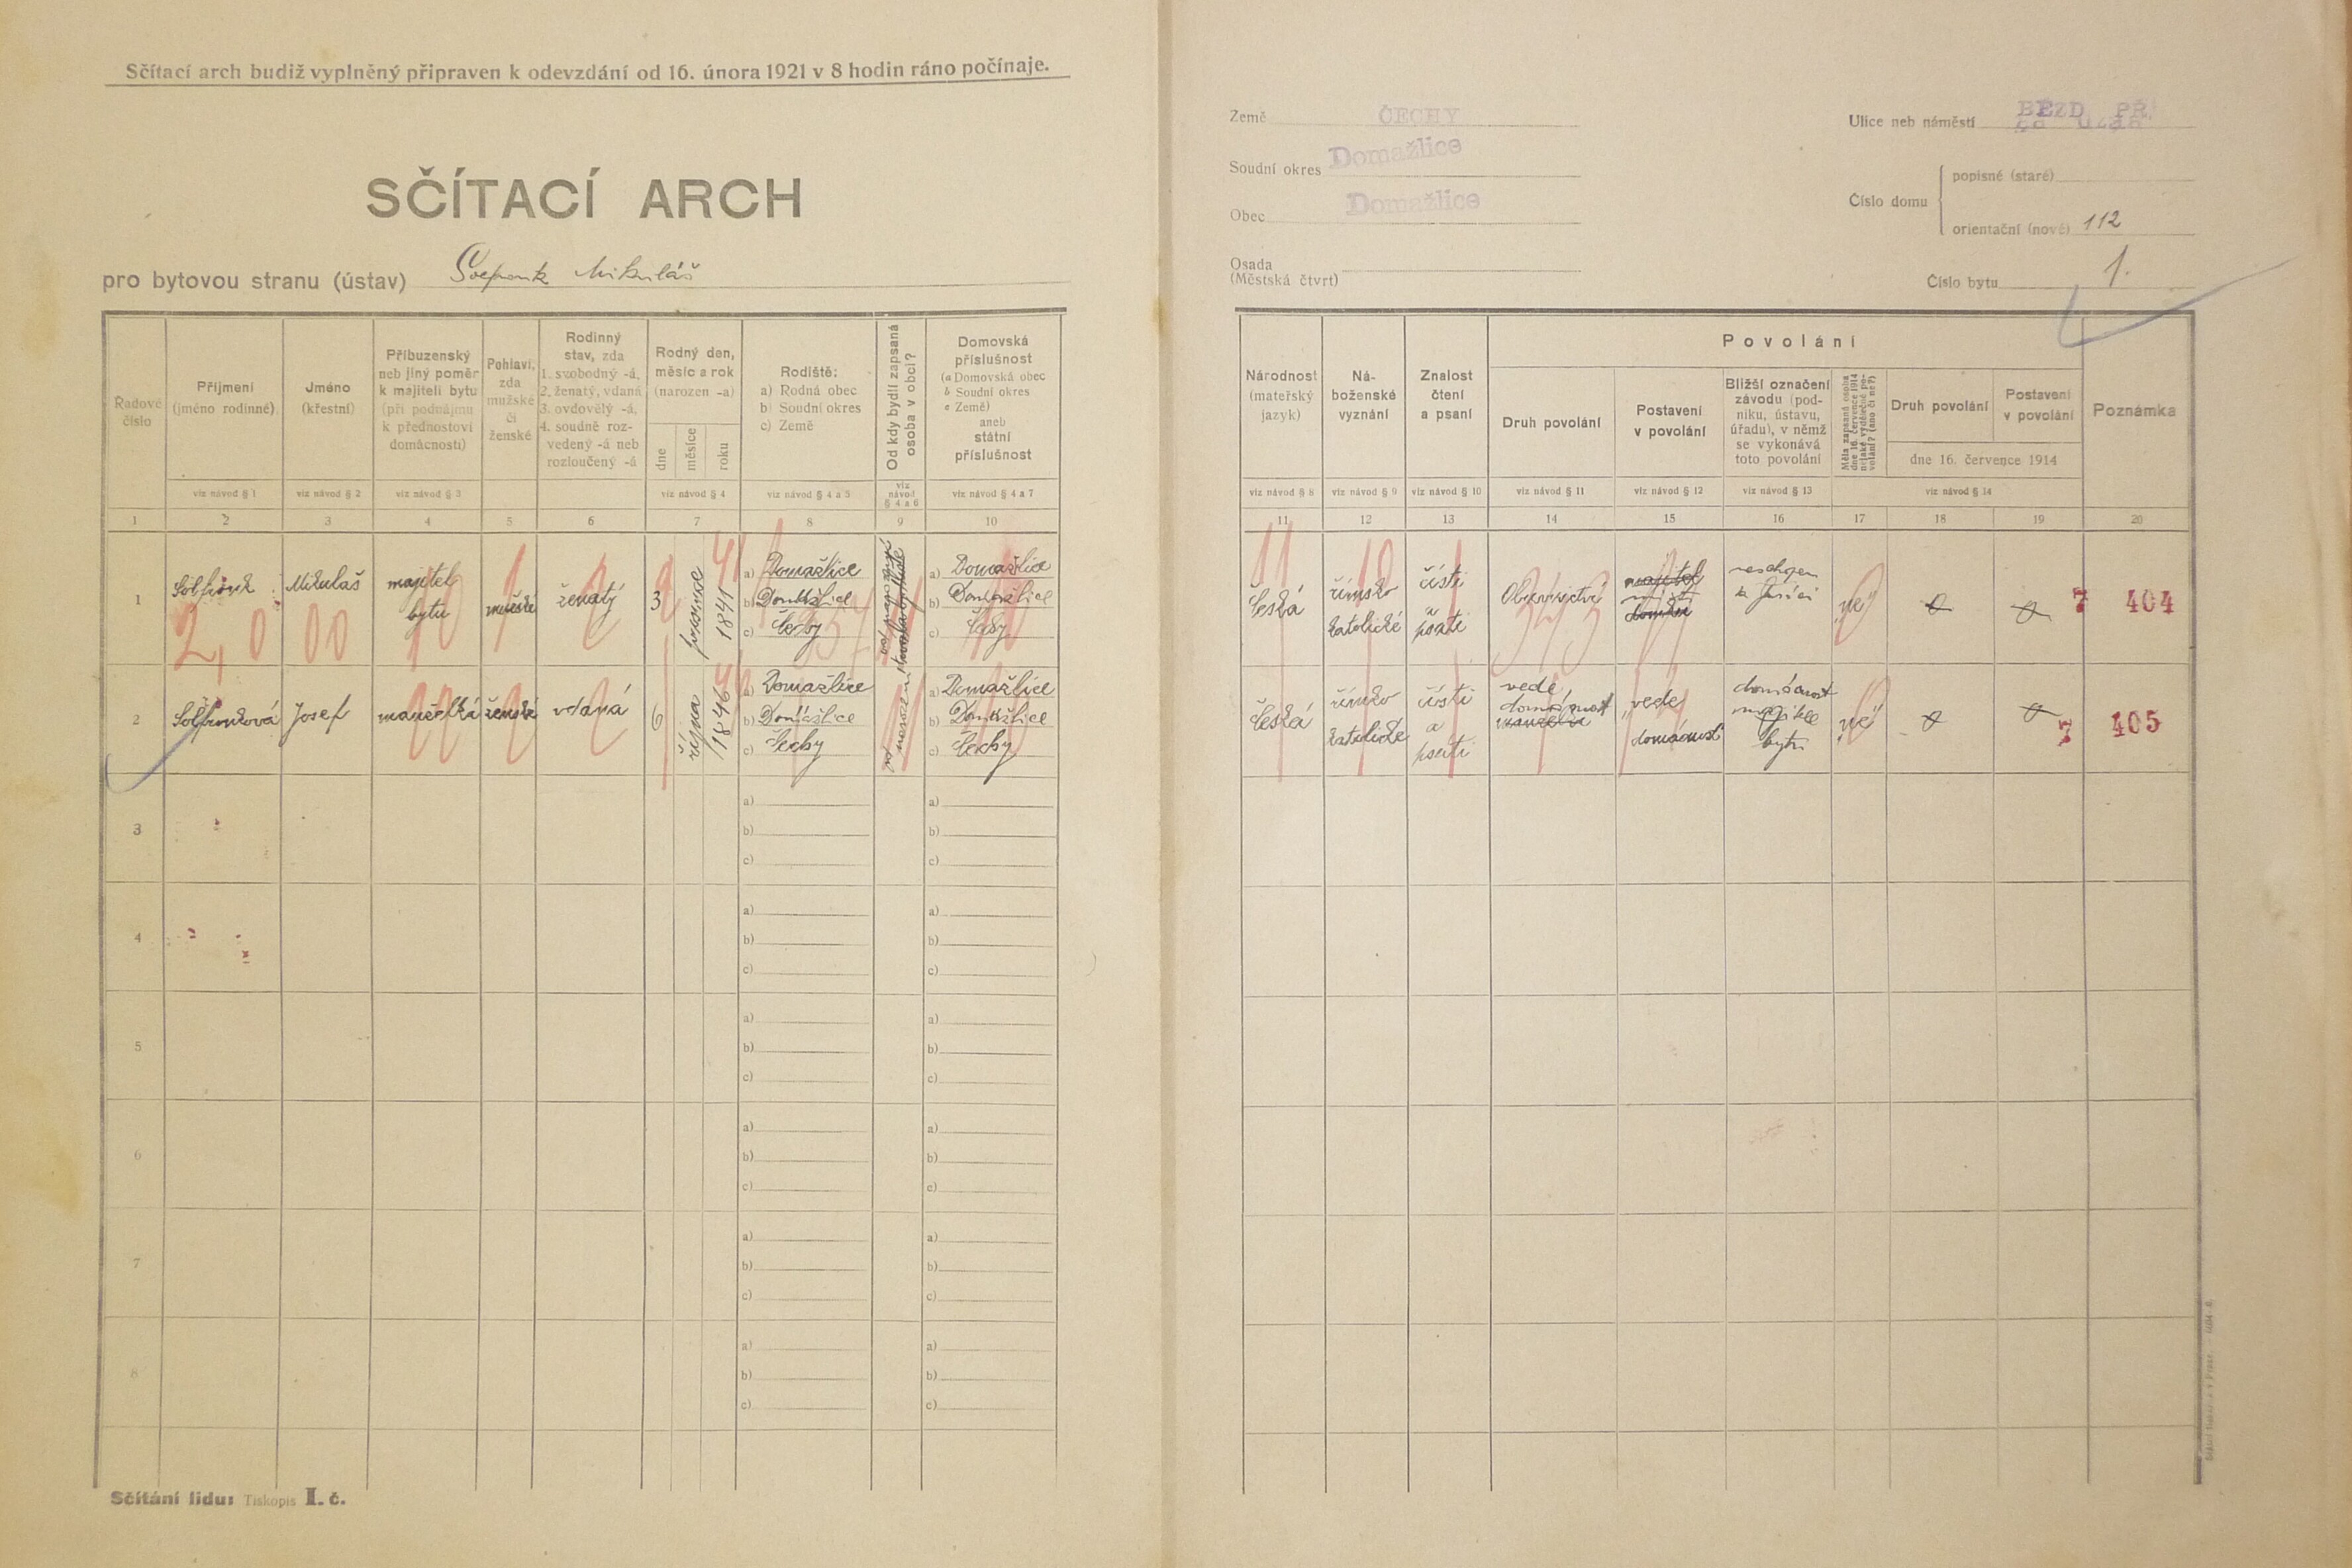 Sčítací arch budiž vyplněný připraven k odevzdání od 16. února 1921 v 8 hodin ráno počínaje.
SČÍTACÍ ARCH
pro bytovou stranu (ústav) Mikuláš
Řadové číslo
Příjmení
(jméno rodinné)
Jméno
(křestní)
Příbuzenský
neb jiný poměr
k majiteli bytu
(při podnájmu
k přednostovi
domácnosti)
Pohlaví,
zda
mužské
či
ženské
Rodinný
stav, zda
1. svobodný -á,
2. ženatý, vdaná
3. ovdovělý -á,
4. soudně roz-
vedený -á neb
rozloučený -á
Rodný den,
měsíc a rok
(narozen -a)
dne
měsíce
roku
Rodiště:
a) Rodná obec
b) Soudní okres
c) Země
Od kdy bydlí zapsaná
osoba v obci?
Domovská
příslušnost
(a Domovská obec
b Soudní okres
c Země)
aneb
státní
příslušnost
viz návod § 1
viz návod § 2
viz návod § 3
viz návod § 4
viz návod § 4 a 5
viz
návod
§ 4 a 6
viz návod § 4 a 7
1 2 3 4 5 6 7 8 9 10
1 Mikuláš majitel bytu mužské ženatý 3 1841
a) Domažlice
b) Domažlice
c) Čechy
a) Domažlice
b) Domažlice
c) Čechy
2 Josef manželka ženské vdaná 6 října 1846
a) Domažlice
b) Domažlice
c) Čechy
od narození
a) Domažlice
b) Domažlice
c) Čechy
3
a) a)
b) b)
c) c)
4
a) a)
b) b)
c) c)
5
a) a)
b) b)
c) c)
6
a) a)
b) b)
c) c)
7
a) a)
b) b)
c) c)
8
a) a)
b) b)
c) c)
Sčítání lidu: Tiskopis I. č.
Země ČECHY
Soudní okres Domažlice
Obec Domažlice
Osada
(Městská čtvrt)
Ulice neb náměstí BEZD PŘ
Číslo domu
popisné (staré)
orientační (nové) 112
Číslo bytu 1.
Národnost
(mateřský
jazyk)
Ná-
boženské
vyznání
Znalost
čtení
a psaní
Povolání
Druh povolání
Postavení
v povolání
Bližší označení
závodu (pod-
niku, ústavu,
úřadu), v němž
se vykonává
toto povolání
Měla zapsaná osoba
dne 16. července 1914
nějaké výdělečné po-
volání? (ano či ne?)
Druh povolání
Postavení
v povolání
dne 16. července 1914
Poznámka
viz návod § 8
viz návod § 9
viz návod § 10
viz návod § 11
viz návod § 12
viz návod § 13
viz návod § 14
11 12 13 14 15 16 17 18 19 20
česká římsko katolické čísti a psáti majitel domku neschopen k práci ne 7 404
česká římsko katolické čísti a psáti vede domácnost vede domácnost domácnost majitele bytu ne 7 405